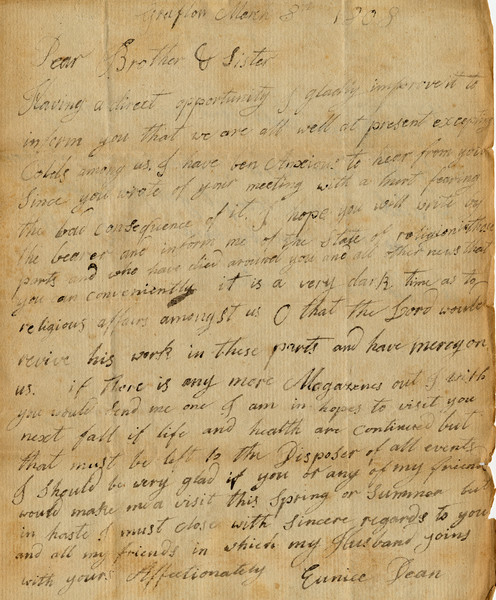 Grafton March 8th 1809
Dear Brother & Sister
Having a direct opportunity I gladly improve it to
inform you that we are all well at present excepting
Colds among us. I have ben Anxious to hear from you
Since you wrote of your meeting with a hurt fearing
the bad consequence of it, I hope you will write by
the bearer and inform me of the State of religion in those
parts and who have died around you and all other news that
you can conveniently it is a very dark time as to
religious affairs amongst us O that the Lord would
revive his work in these parts and have mercy on
us. if there is any more Magazenes out I wish
you would send me one I am in hopes to visit you
next fall if life and health are continued but
that must be left to the Disposer of all events
I should be very glad if you or any of my friends
would make me a visit this Spring or Summer but
in haste I must close with sincere regards to you
and all my friends in which my Husband joins
with yours Affectionately Eunice Dean